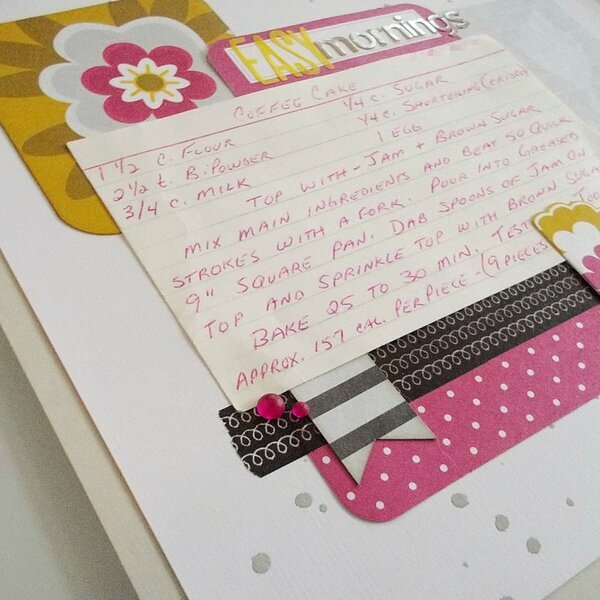 EASY mornings
COFFEE CAKE
1 1/2 C. FLOUR 1/4 C. SUGAR
2 1/2 t. B. POWDER 1/4 C. SHORTENING (CRISCO)
3/4 C. MILK 1 EGG
TOP WITH - JAM + BROWN SUGAR
MIX MAIN INGREDIENTS AND BEAT 50 QUICK
STROKES WITH A FORK. POUR INTO GREASED
9" SQUARE PAN. DAB SPOONS OF JAM ON
TOP AND SPRINKLE TOP WITH BROWN SUGAR
BAKE 25 TO 30 MIN. TEST
APPROX. 157 CAL. PER PIECE - (9 PIECES